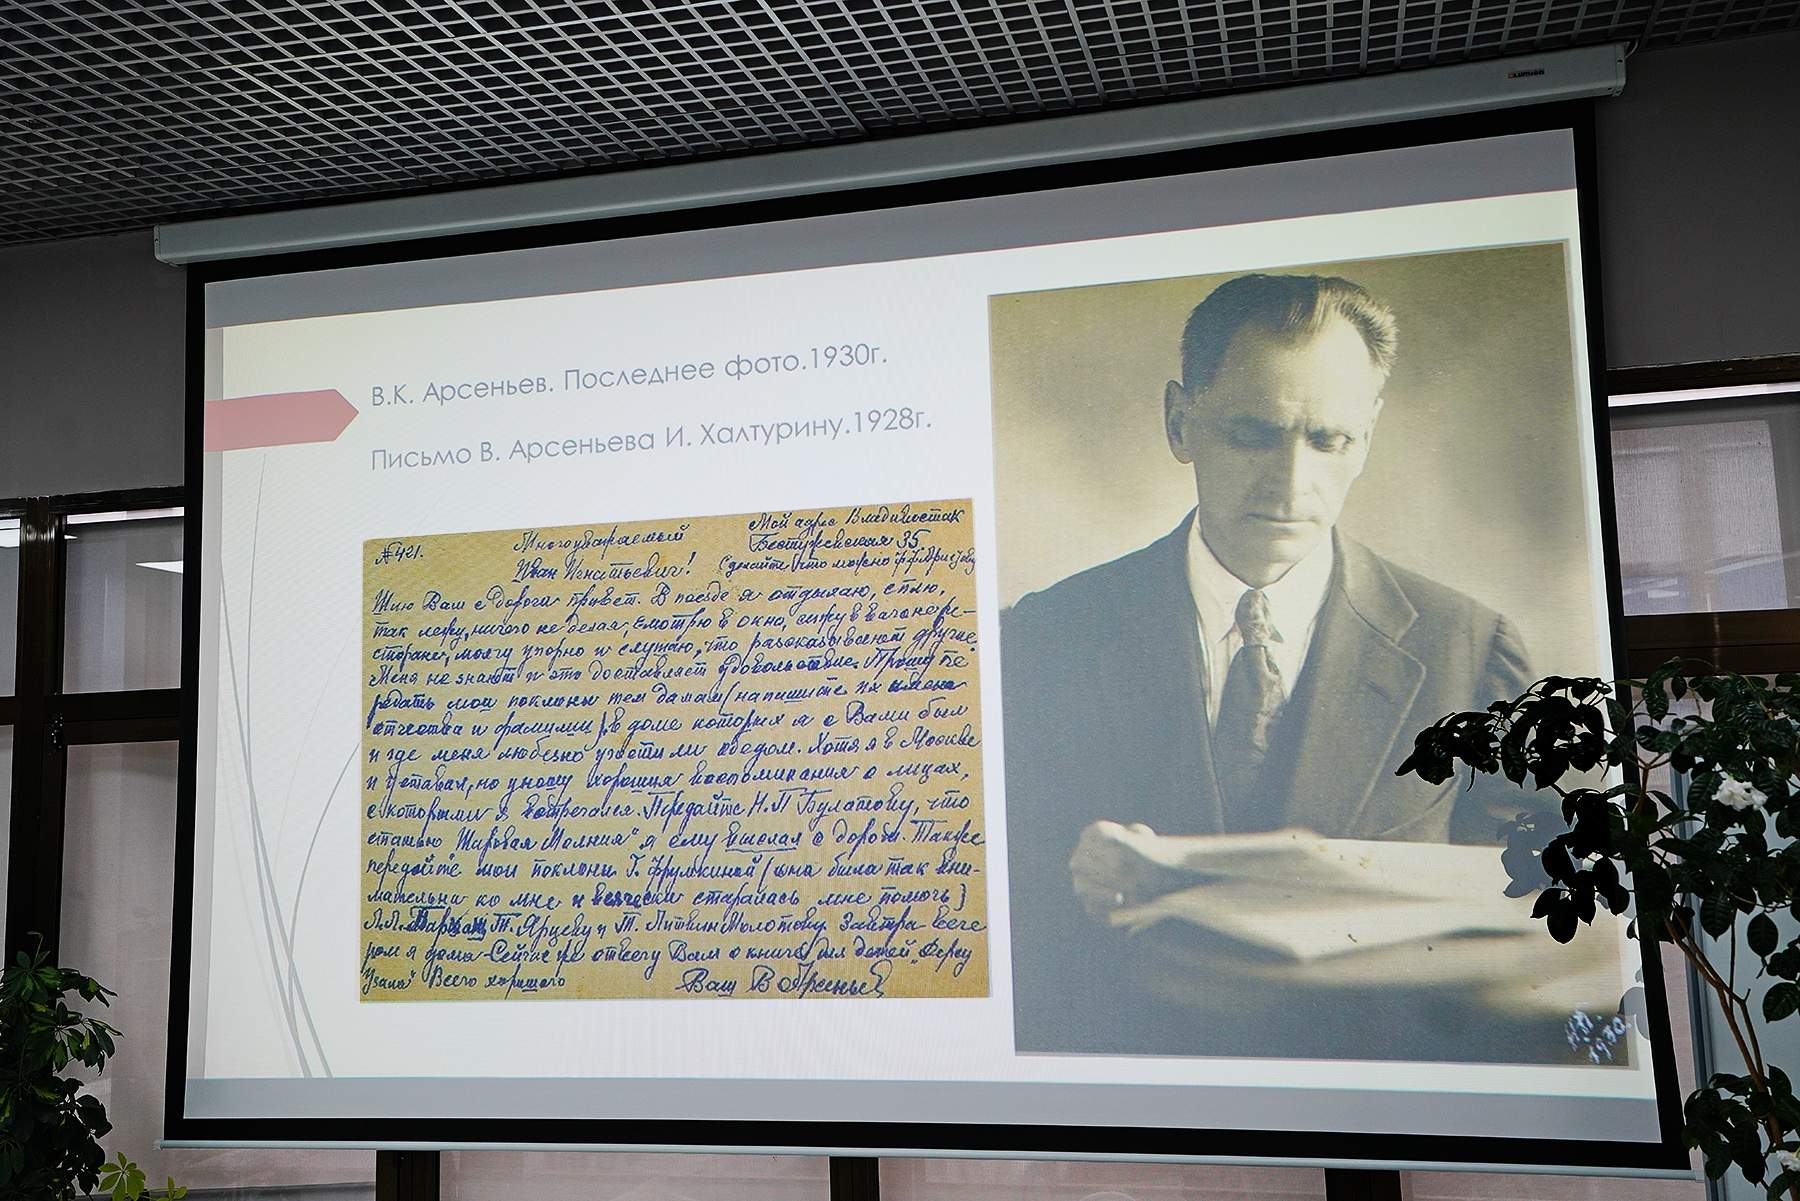 В.К. Арсеньев. Последнее фото.1930г.
Письмо В. Арсеньева И. Халтурину.1928г.
№421.
Многоуважаемый
Иван Игнатьевич!
Мой адрес Владивосток
Бестужевская 35
Сделайте что можно
Шлю Вам с дороги привет. В поезде я отдыхаю, сплю,
так лежу, ничего не делая, смотрю в окно, сижу в вагоне
стороне, молчу упорно и слушаю, что рассказывают другие.
Меня не знают и это доставляет удовольствие. Прошу пе-
редать мои поклоны тем дамам (напишите их имена
отчества и фамилии), в доме которых я с Вами был
и где меня любезно угостили обедом. Хотя я в Москве
и уставал, но уношу хорошия воспоминания о лицах,
с которыми я встречался. Передайте Н.П Булатову, что
статью "Шаровая Молния" я ему выслал с дороги. Также
передайте мои поклоны Г. Фрумкиной (она была так вни-
мательна ко мне и всячески старалась мне помочь)
Л.Л. Т. Ярцеву и Т. Литвин Молотову. Завтра вече
ром я дома. Сейчас же отвечу Вам о книге для детей "Дерсу
Узала" Всего хорошаго
Ваш В Арсеньев
1930.